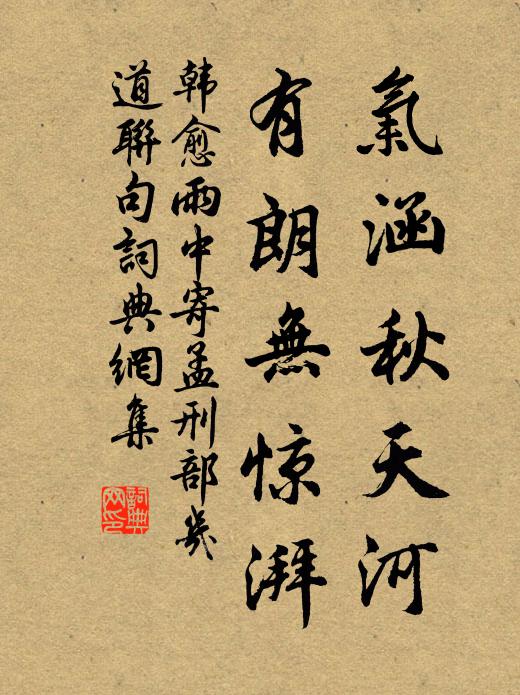 氣涵秋天河
有朗無惊湃
韩愈雨中寄孟刑部幾
道聯句詞典網集
詞典
网印